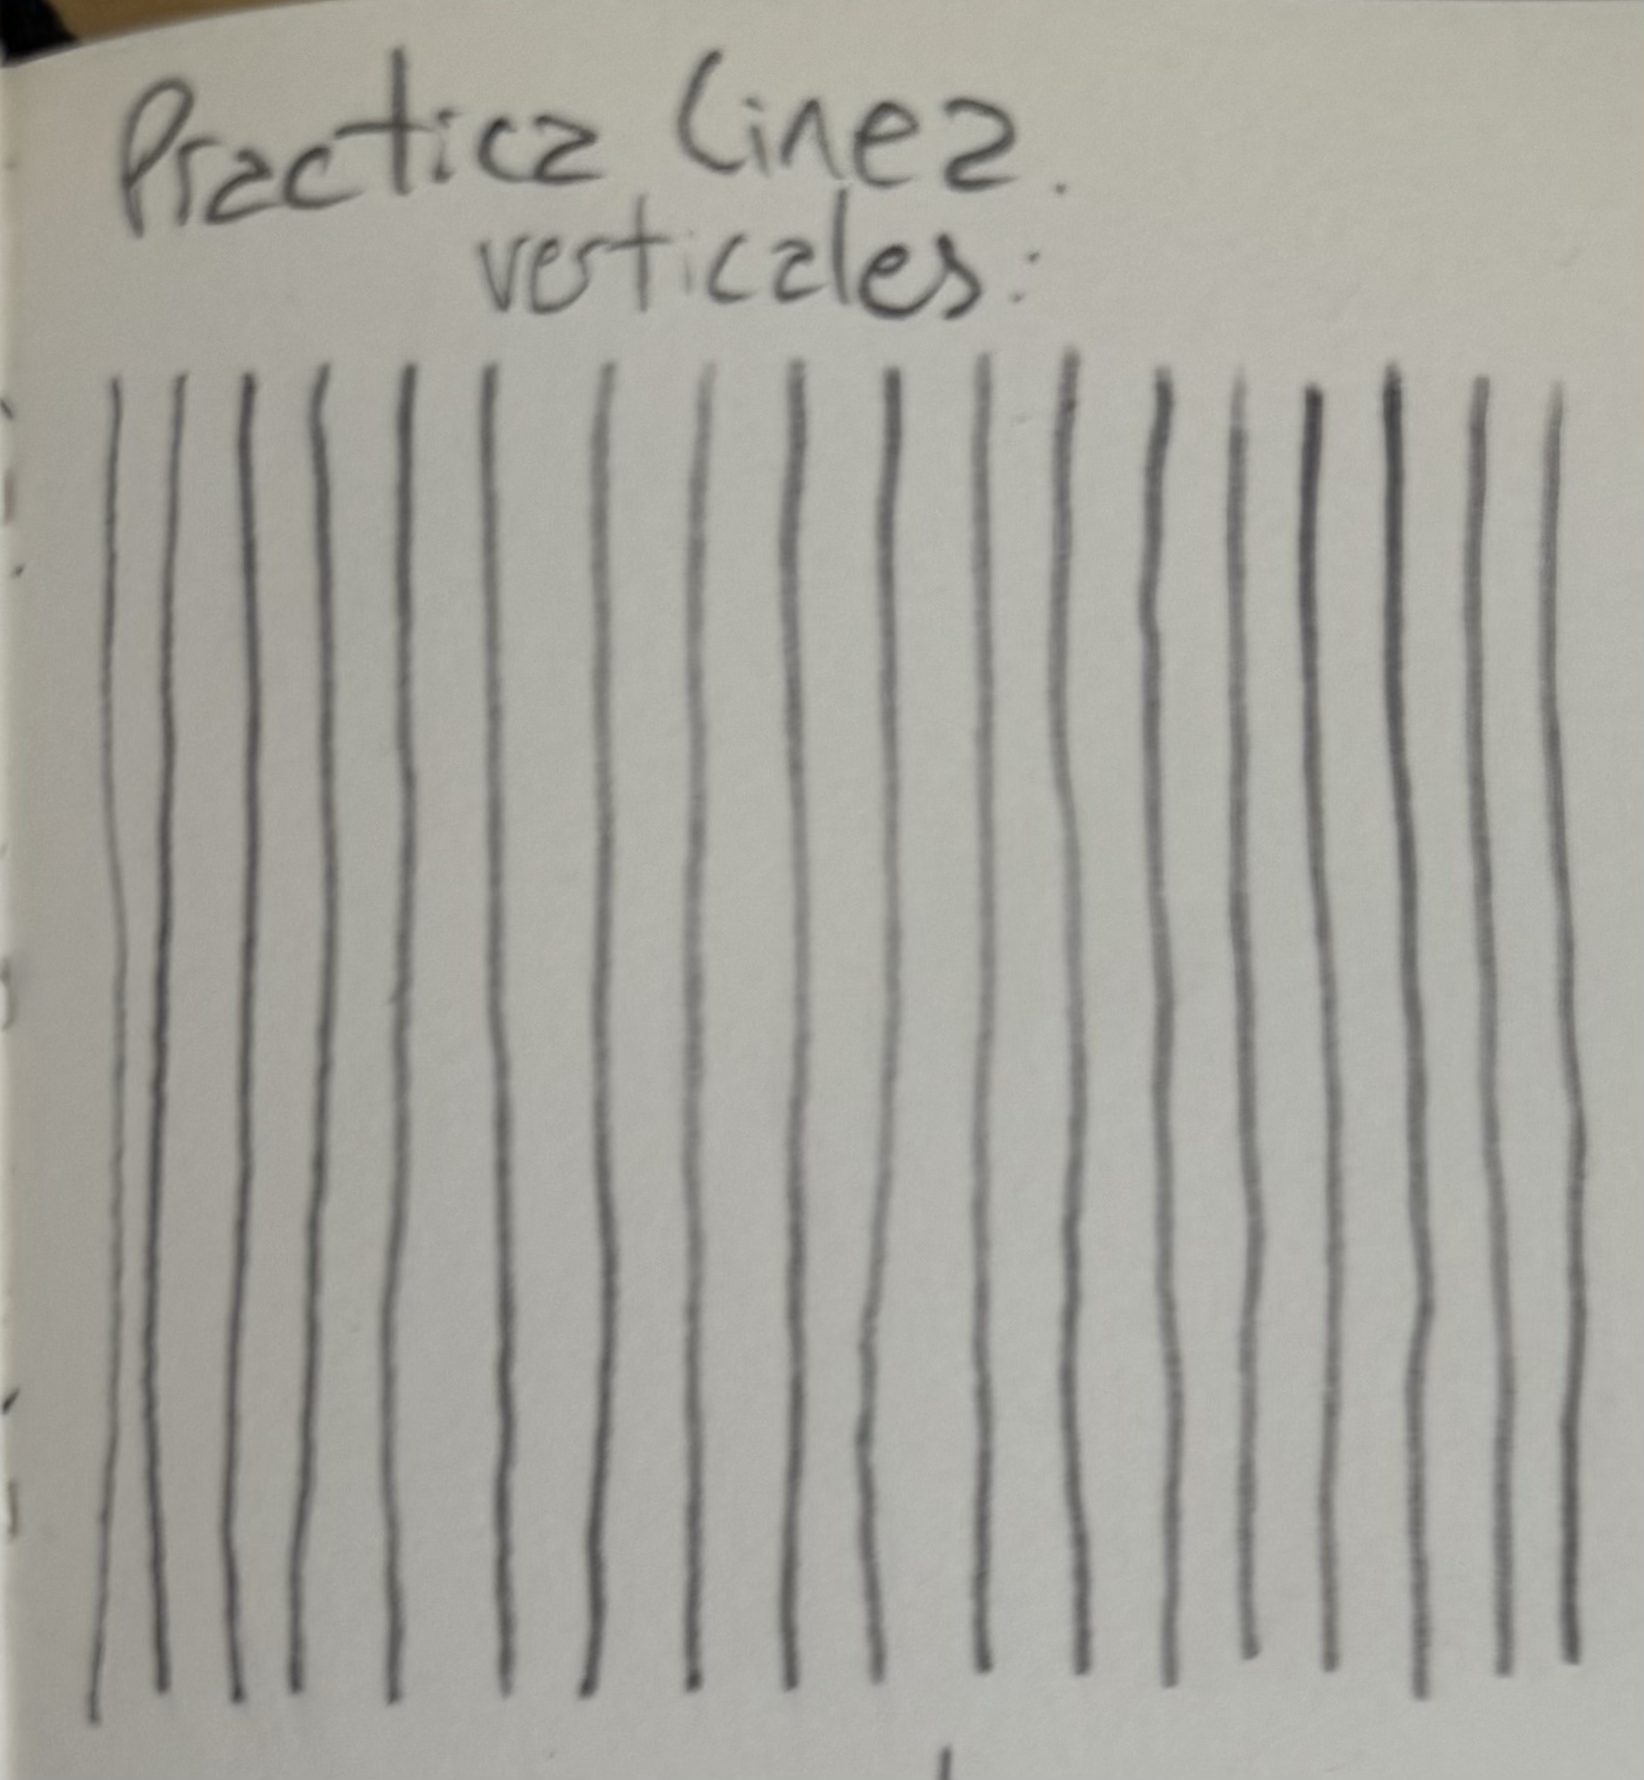 Practica linea.
verticales: